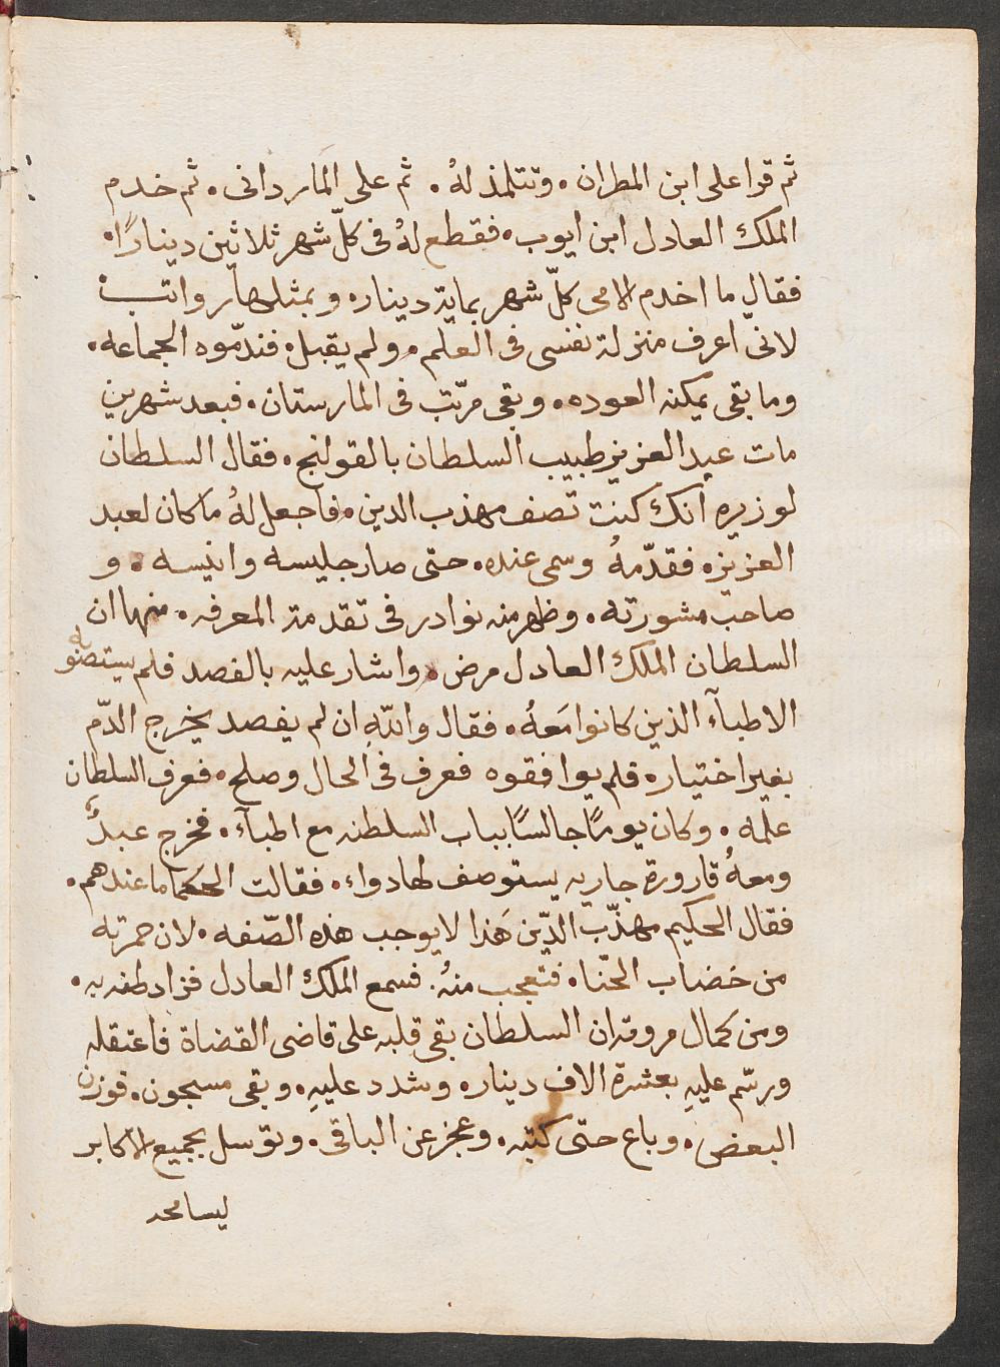 ثم قرا على ابن المطران. وتتلمذ لهُ. ثم على الماردانى. ثم خدم
الملك العادل ابن ايوب. فقطع لهُ فى كلّ شهر ثلاثين دينارًا.
فقال ما اخدم الا فى كلّ شهر بماية دينار. وبمثلها رواتب
لانىّ اعرف منزلة نفسى فى العلم. ولم يقبل. فندّموه الجماعه.
وما بقى يمكنه العوده. وبقى مرتّب فى المارستان. فبعد شهرين
مات عبد العزيز طبيب السلطان بالقولنج. فقال السلطان
لوزيره انك كنت تصف مهذب الدين. فاجعل لهُ ما كان لعبد
العزيز. فقدّمهُ وسمى عنده. حتى صار جليسه وانيسه. و
صاحب مشورته. وظهر منه نوادر فى تقدمة المعرفه. منها ان
السلطان الملك العادل مرض. واشار عليه بالفصد فلم يستصوبه
الاطبآء الذين كانوا مَعهُ. فقال واللهِ ان لم يفصد يخرج الدّم
بغير اختياره فلم يوافقوه فعرف فى الحال وصلح. فعرف السلطان
علمه. وكان يومًا جالسًا بباب السلطنه مع اطبآء. فخرج عبدٌ
ومعهُ قارورة جاريه يستوصف لها دواء. فقالت الحكما ما عندهم.
فقال الحكيم مهذّب الدّين هَذا لا يوجب هذه الصّفه. لان حمرته
من خضاب الحّنا. فتعجب منهُ. فسمع الملك العادل فزاد طفر به.
ومن كمال مروته ان السلطان بقى قلبه على قاضى القضاة فاعتقله
ورسّم عليهِ بعشرة الاف دينار. وشدد عليهِ. وبقى مسجون. فوزن
البعض. وباع حتى كتبه. وعجز عن الباقى. وتوسل بجميع الاكابر
ليسامحه